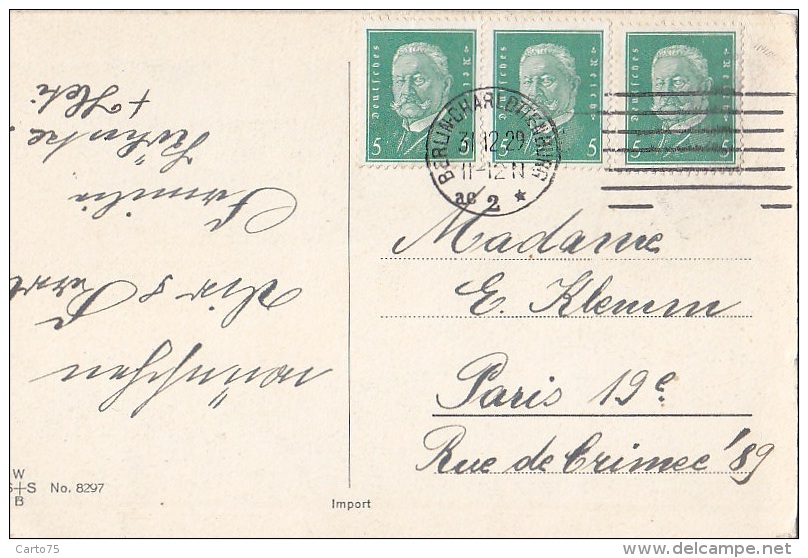 Deutsches Reich
5 5
Deutsches Reich
5 5
Deutsches Reich
5 5
BERLIN-CHARLOTTENBURG
31.12.29
11-12 N
ac 2 *
Madame
E. Klemm
Paris 19e
Rue de Crimee 89
wünschen
Familie
+ Heti
W
S+S No. 8297
B
Import
Carto75
www.delcampe.net